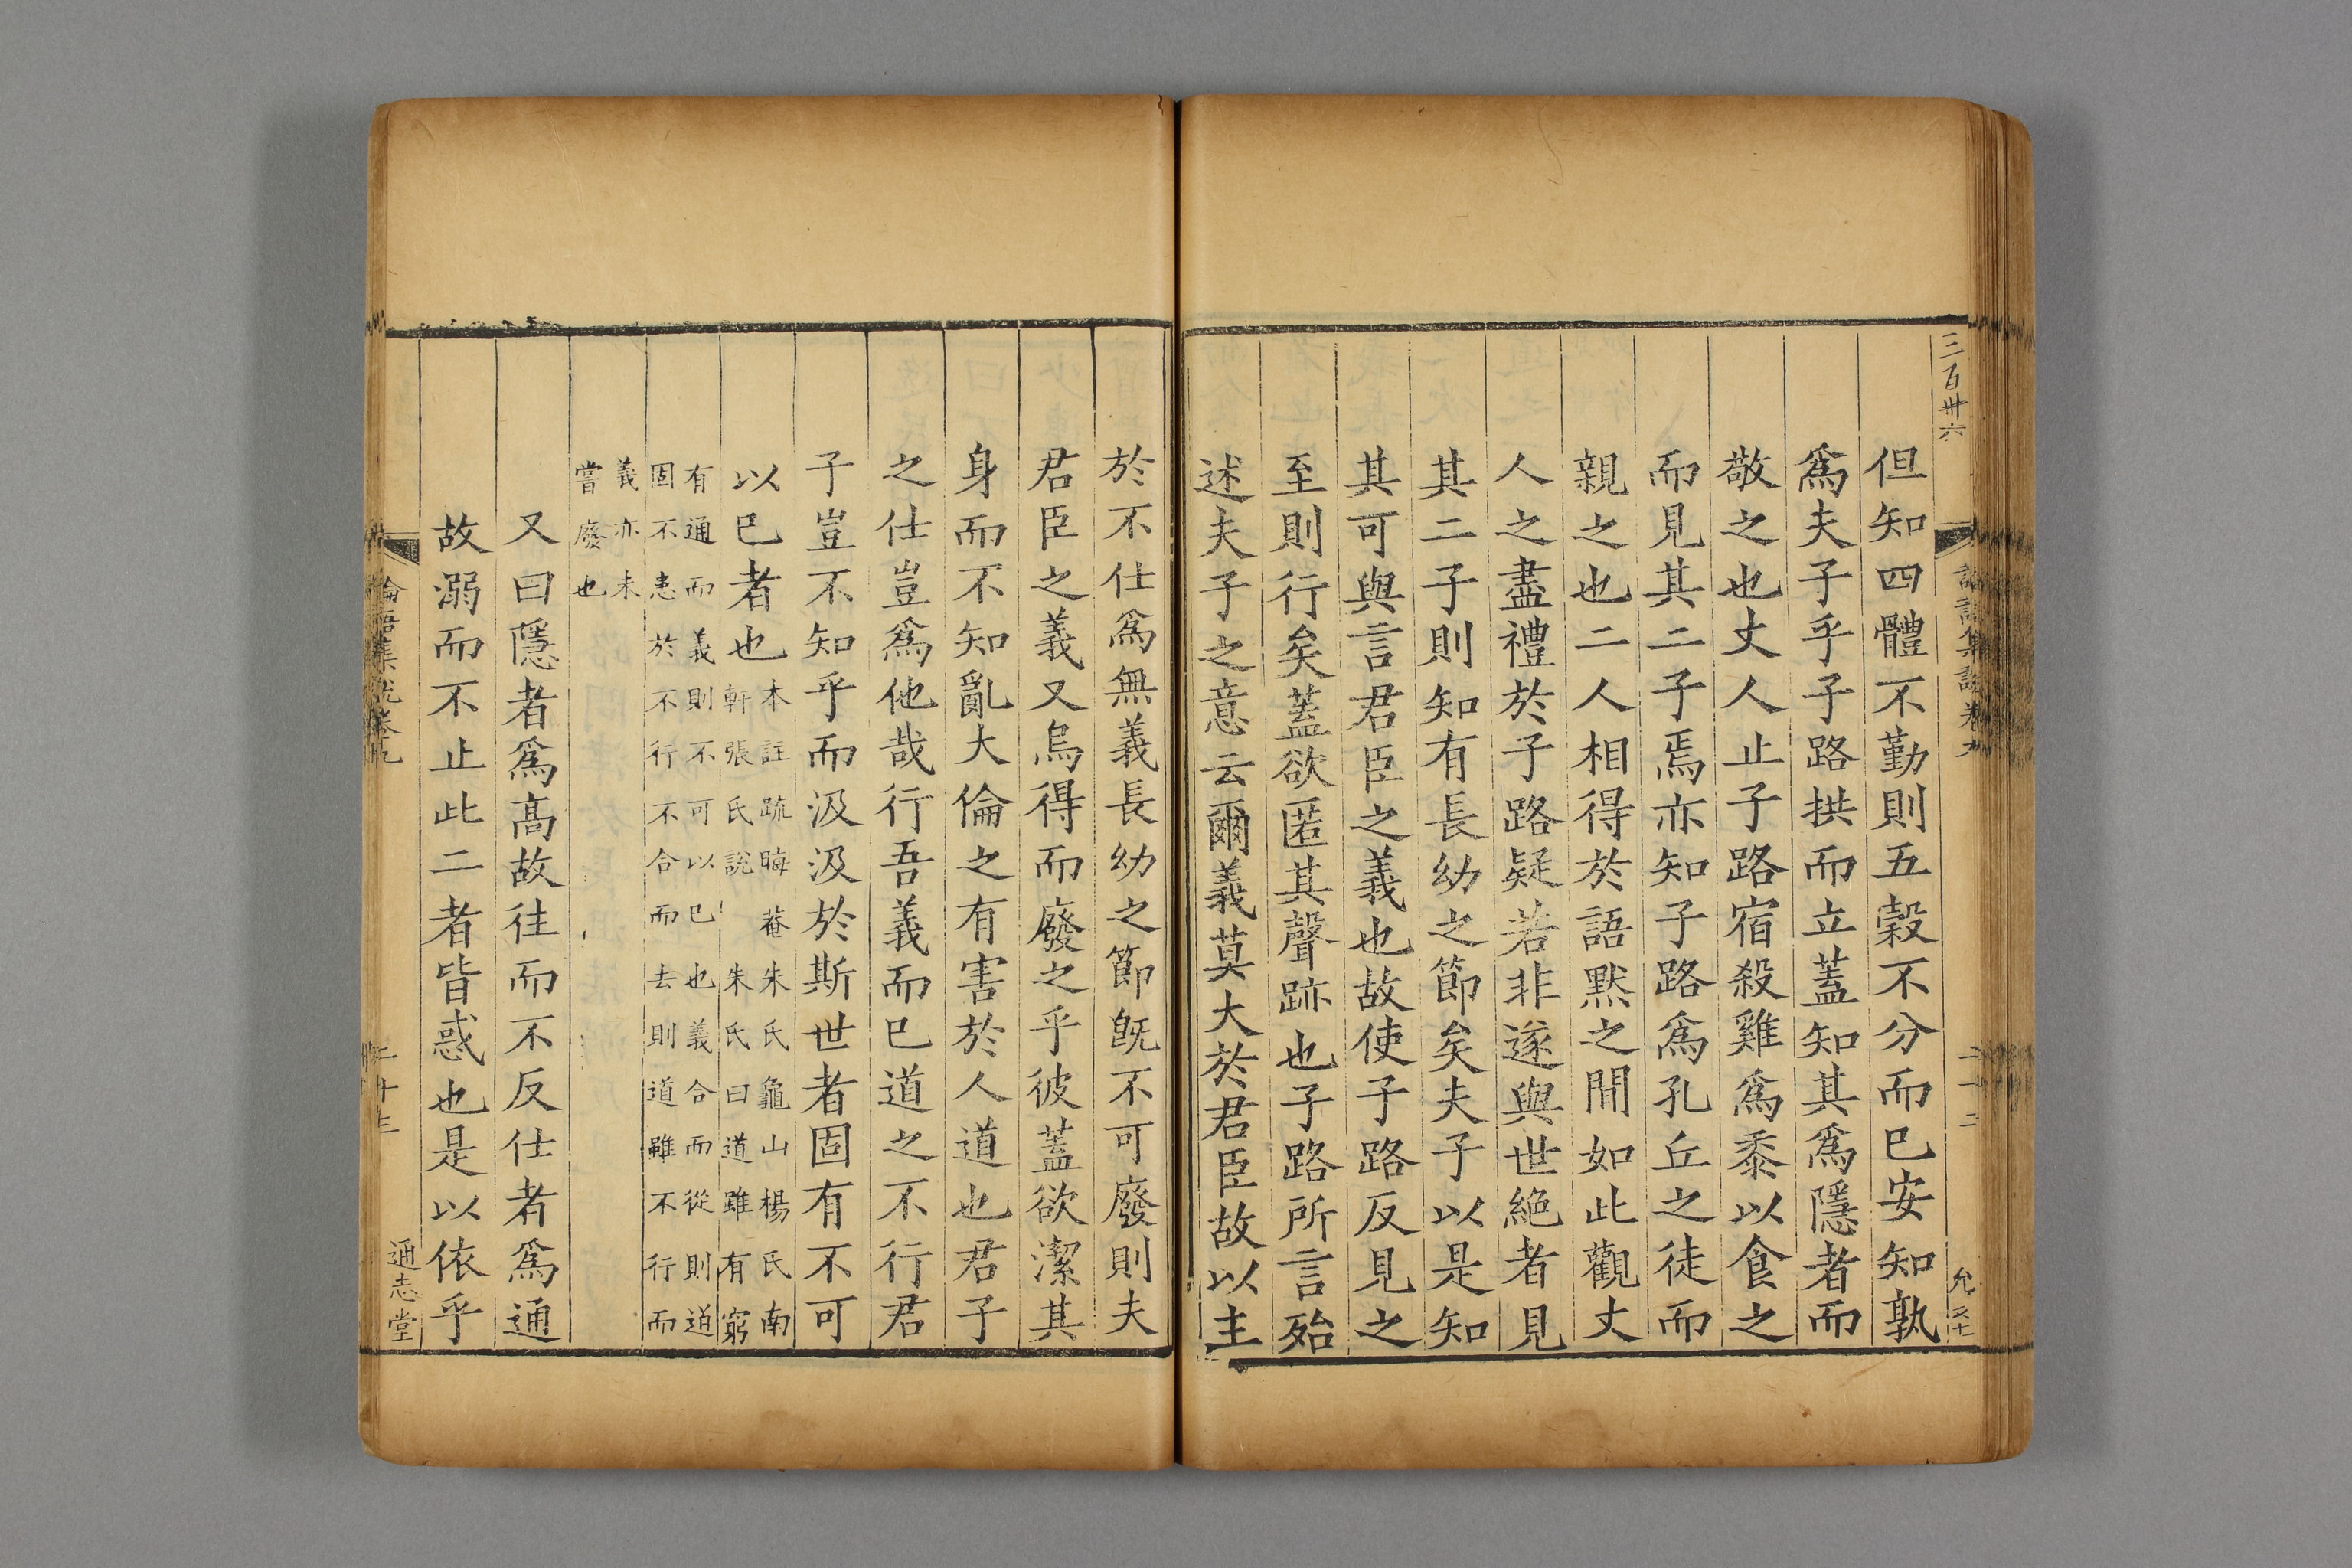 三百卅六
但知四體不勤則五穀不分而已安知孰
爲夫子乎子路拱而立蓋知其爲隱者而
敬之也丈人止子路宿殺雞爲黍以食之
而見其二子焉亦知子路爲孔丘之徒而
親之也二人相得於語默之間如此觀丈
人之盡禮於子路疑若非遂與世絶者見
其二子則知有長幼之節矣夫子以是知
其可與言君臣之義也故使子路反見之
至則行矣蓋欲匿其聲跡也子路所言殆
述夫子之意云爾義莫大於君臣故以主
於不仕爲無義長幼之節旣不可廢則夫
君臣之義又烏得而廢之乎彼蓋欲潔其
身而不知亂大倫之有害於人道也君子
之仕豈爲他哉行吾義而已道之不行君
子豈不知乎而汲汲於斯世者固有不可
以已者也
本註疏晦菴朱氏龜山楊氏南
軒張氏說 朱氏曰道雖有窮
有通而義則不可以已也義合而從則道
固不患於不行不合而去則道雖不行而
義亦未
嘗廢也
又曰隱者爲高故往而不反仕者爲通
故溺而不止此二者皆惑也是以依乎
論語集說卷九
二十三
通志堂